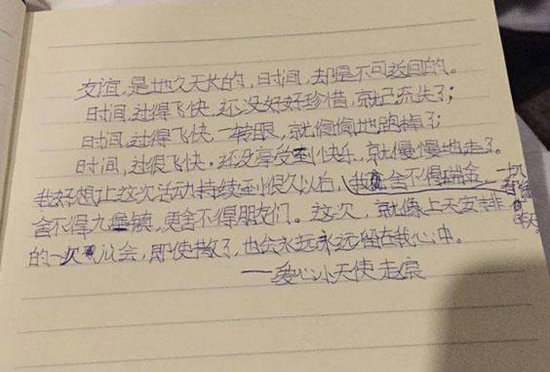 友谊,是地久天长的,时间,却是不可返回的。
时间,过得飞快,还没好好珍惜,就已流失了;
时间,过得飞快,一转眼,就偷偷地跑掉了;
时间,过很飞快,还没享受到快乐,就慢慢地走了。
我好想让这次活动持续到很久以后,我舍不得瑞金,
舍不得九堡镇,更舍不得朋友们。这次,就像上天安排
的一次聚会,即使散了,也会永远永远留在我心中。
——爱心小天使